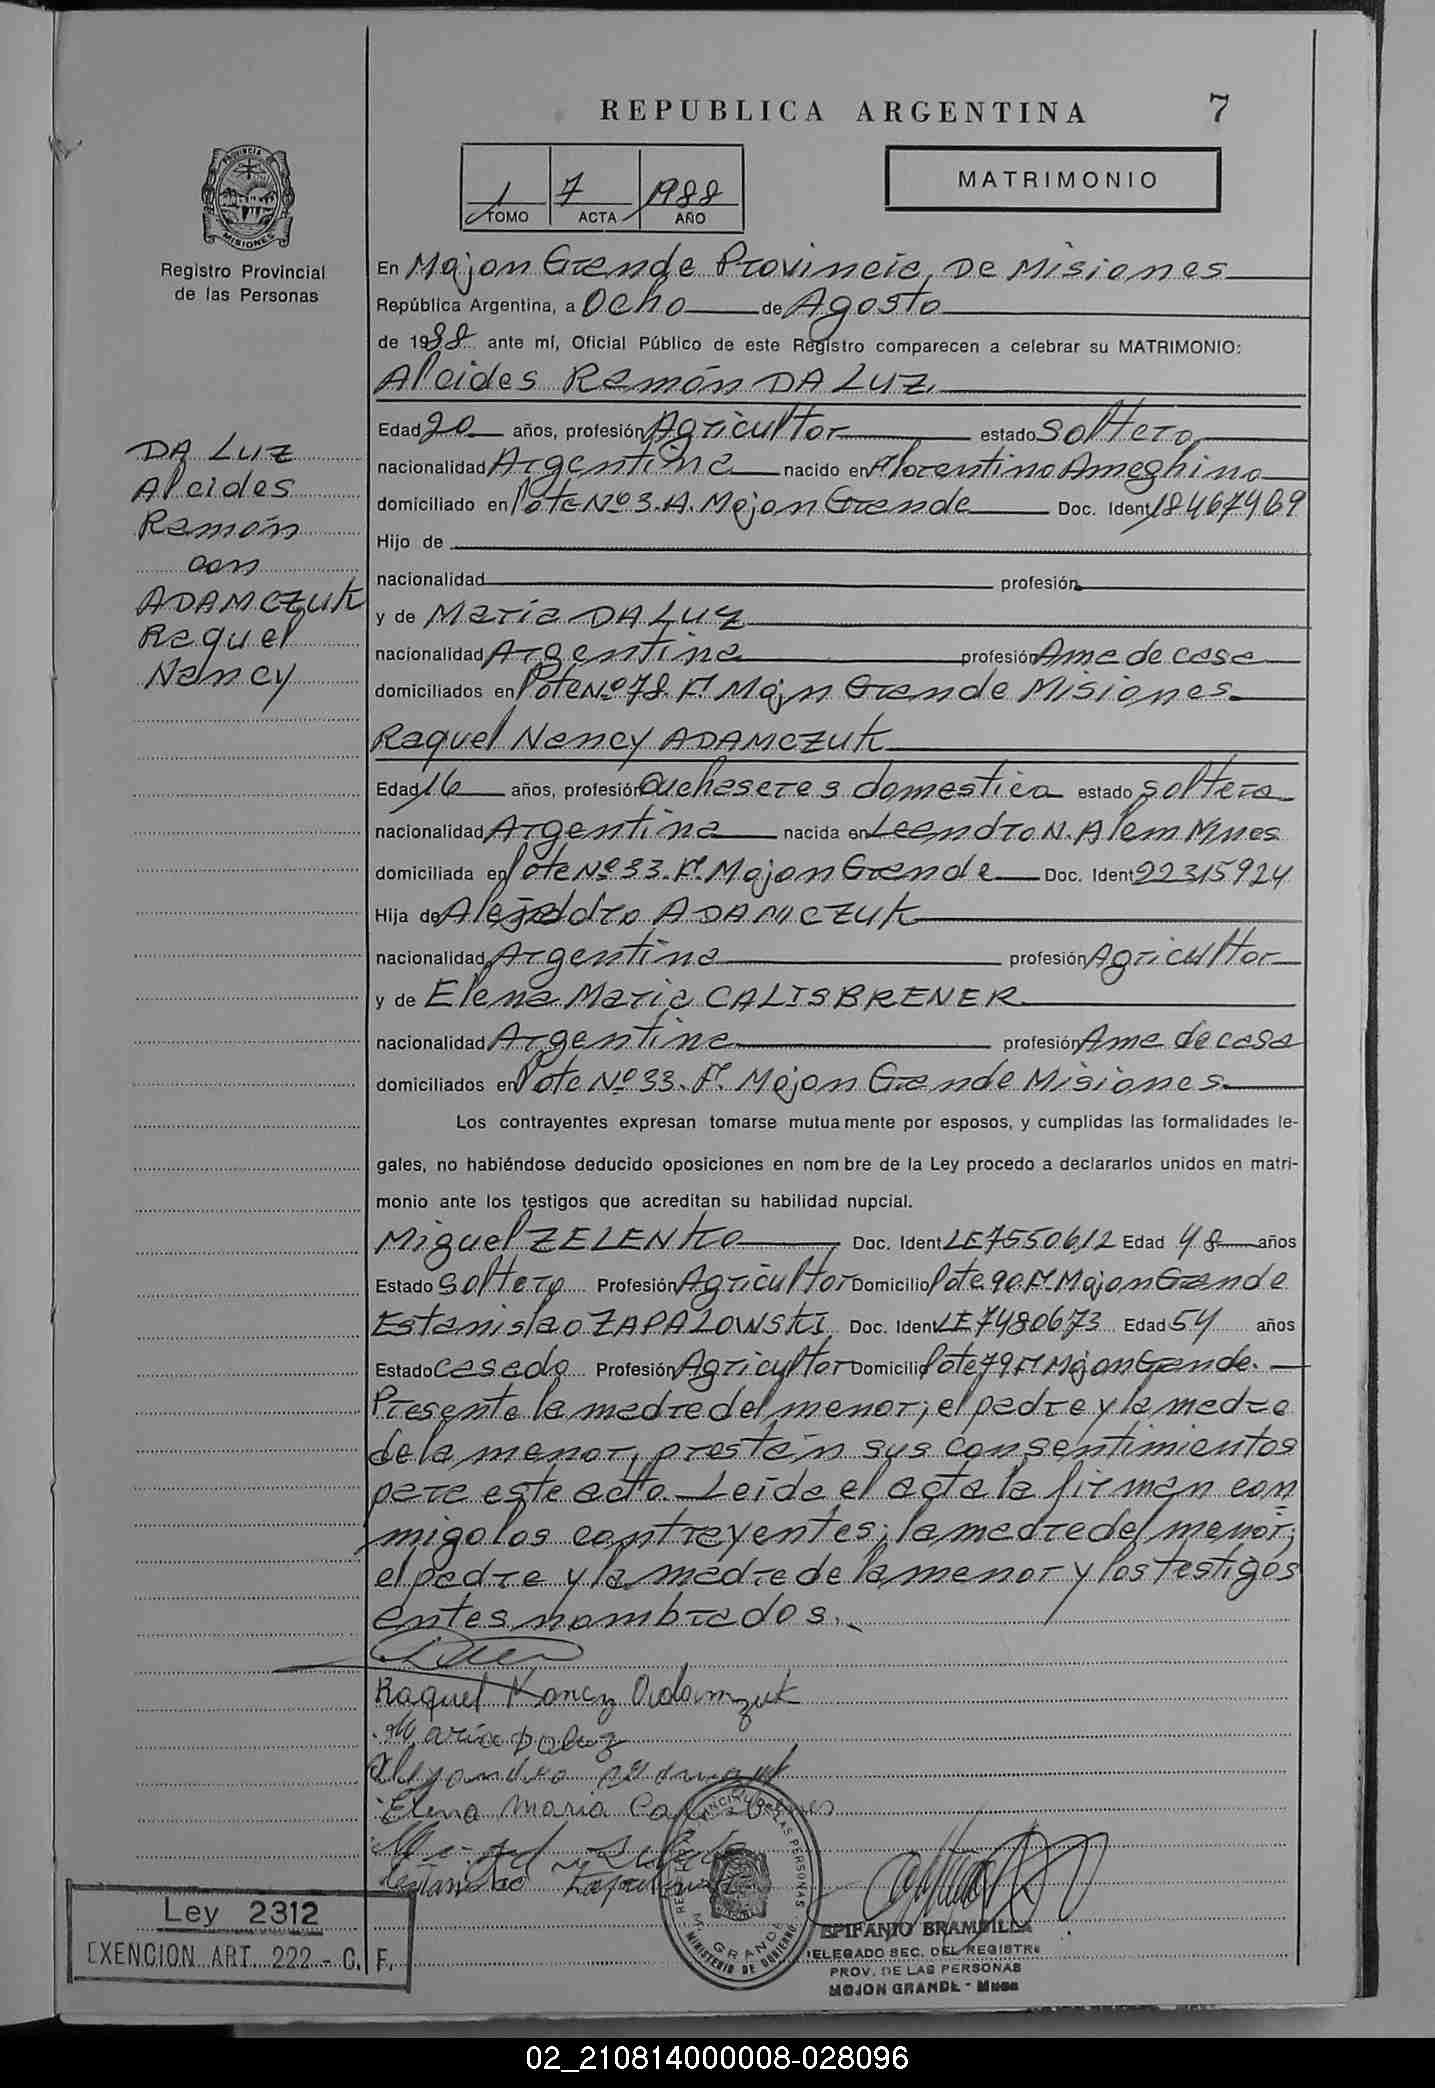 REPUBLICA ARGENTINA
7
1 7 1988
TOMO ACTA AÑO
MATRIMONIO
PROVINCIA
MISIONES
Registro Provincial
de las Personas
DA LUZ
Alcides
Ramón
con
ADAMCZUK
Raquel
Nancy
En Mojon Grande Provincia, De Misiones
República Argentina, a Ocho de Agosto
de 1988 ante mí, Oficial Público de este Registro comparecen a celebrar su MATRIMONIO:
Alcides Ramón DA LUZ.
Edad 20 años, profesión Agricultor estado soltero
nacionalidad Argentina nacido en Florentino Ameghino
domiciliado en lote Nº 3. A. Mojon Grande Doc. Ident 18467469
Hijo de
nacionalidad profesión
y de Maria DA LUZ
nacionalidad Argentina profesión Ama de casa
domiciliados en lote Nº 78. Fl. Mojn Grande Misiones.
Raquel Nancy ADAMCZUK
Edad 16 años, profesión Quehaseres domestica estado soltera
nacionalidad Argentina nacida en Leandro N. Alem Mnes
domiciliada en lote Nº 33. Fl. Mojon Grande Doc. Ident 22315924
Hija de ADAMCZUK
nacionalidad Argentina profesión Agricultor
y de Elena Maria CALISBRENER
nacionalidad Argentina profesión Ama de casa
domiciliados en lote Nº 33. Fl. Mojon Grande Misiones.
Los contrayentes expresan tomarse mutuamente por esposos, y cumplidas las formalidades le-
gales, no habiéndose deducido oposiciones en nombre de la Ley procedo a declararlos unidos en matri-
monio ante los testigos que acreditan su habilidad nupcial.
Miguel ZELENKO Doc. Ident LE7550612 Edad 48 años
Estado soltero Profesión Agricultor Domicilio lote 90. Fl. Mojon Grande
Estanislao ZAPALOWSKI Doc. Ident LE7480673 Edad 54 años
Estado casado Profesión Agricultor Domicilio lote 79 Fl Mojon Grande.
Presente la madre del menor; el padre y la madre
de la menor, prestan sus consentimientos
para este acto. Leida el acta la firman con
migo los contrayentes; la madre del menor;
el padre y la madre de la menor y los testigos
antes nombrados.
Raquel Nancy Adamzuk
Maria Daluz
Elena Maria
Ley 2312
EXENCION ART. 222 - C. F.
M. GRANDE
MINISTERIO DE GOBIERNO
EPIFANIO BRAMBILLA
DELEGADO SEC. DEL REGISTRO
PROV. DE LAS PERSONAS
MOJON GRANDE - Mnes
02_210814000008-028096